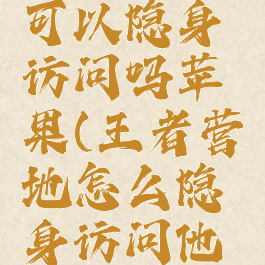 可以隐身
访问吗苹
果(王者营
地怎么隐
身访问他